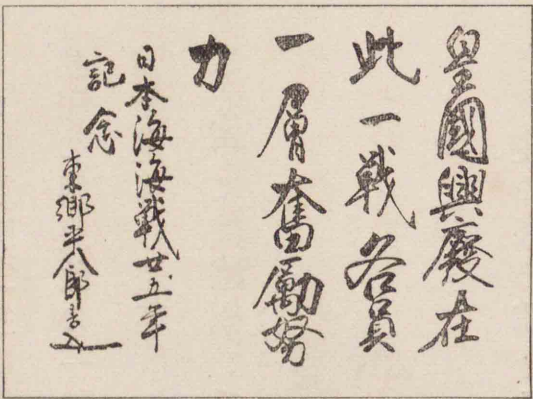 皇國興廢在
此一戰各員
一層奮勵努
力
日本海海戰廿五年
記念
東郷平八郎書